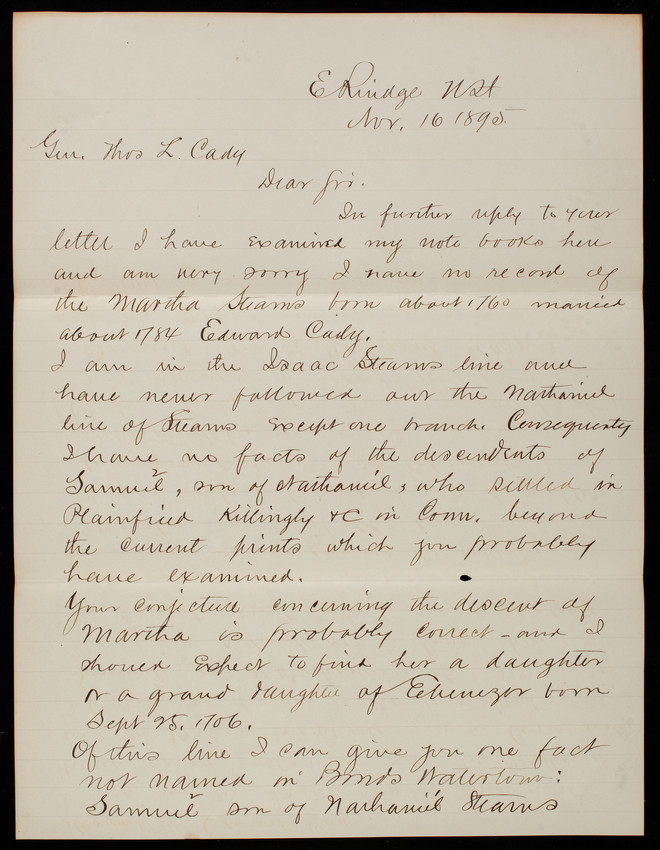 E Rindge NH
Nov. 16 1895
Gen. Thos L. Cady
Dear Sir.
In further reply to your
letter I have examined my note books here
and am very sorry I have no record of
the Martha Stearns born about 1760 married
about 1784 Edward Cady.
I am in the Isaac Stearns line and
have never followed out the Nathaniel
line of Stearns except one branch. Consequently
I have no facts of the descendents of
Samuel, son of Nathaniel, who settled in
Plainfield Killingly &C in Conn. beyond
the current prints which you probably
have examined.
Your conjecture concerning the descent of
Martha is probably correct - and I
should expect to find her a daughter
or a grand daughter of Ebenezer born
Sept 25. 1706.
Of this line I can give you one fact
not named in Bonds Watertown:
Samuel son of Nathaniel Stearns